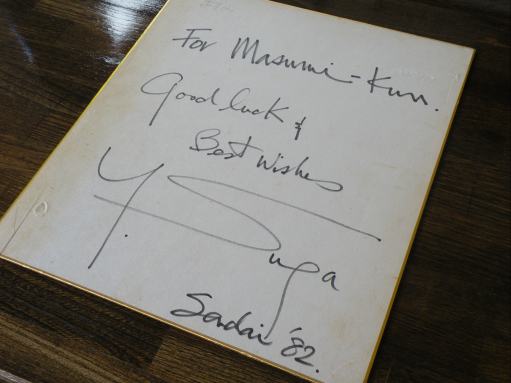 For Masumi-Kun.
Good luck &
Best Wishes
Y. Suga
Sadai '82.